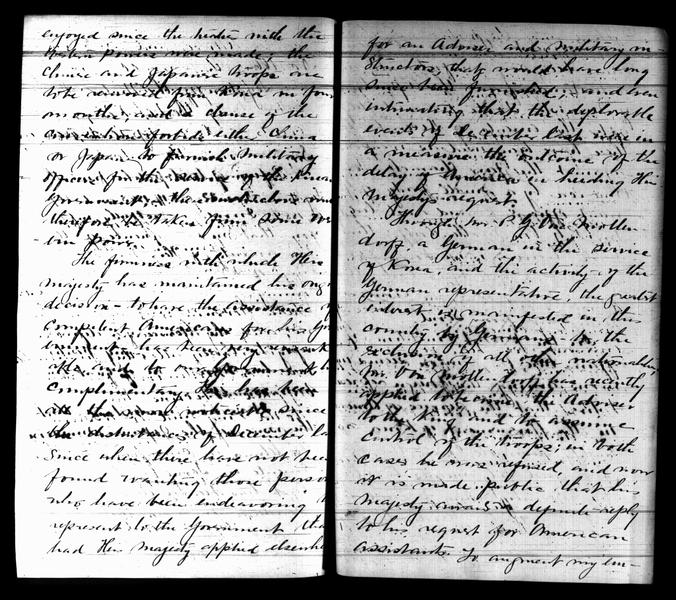 enjoyed since the treaties with the
Western powers were made; the
Chinese and Japanese troops are
to be removed from Korea in four
months, and a clause of the
Convention forbids either China
or Japan to furnish military
officers for the service of the Korean
Government, these instructors must
therefore be taken from some Wes-
tern power.
The firmness with which His
Majesty has maintained his original
decision - to have the assistance of
Competent Americans for his Gov
ernment, has been very remark
able and to
complimentary. This has been
all the more noticeable since
the disturbances of December last
Since when there have not been
found wanting those persons
who have been endeavoring to
represent to the Government, that
had His Majesty applied elsewhere
for an Adviser and military in-
structors, that would have long
since been furnished; and even
intimating that the deplorable
events of December last were in
a measure the outcome of the
delay of America in heeding His
Majesty's request.
Through Mr. P. G. Von Mollen
dorff, a German in the service
of Korea, and the activity of the
German representative, the greatest
interest is manifested in this
country by Germans to the
exclusion of all other nationalities
Mr. Von Mollendorff has recently
applied to become the Adviser
to the King and to assume
control of the troops; in both
cases he was refused and now
it is made public that his
Majesty awaits a definite reply
to his request for American
assistants. To augment my em-